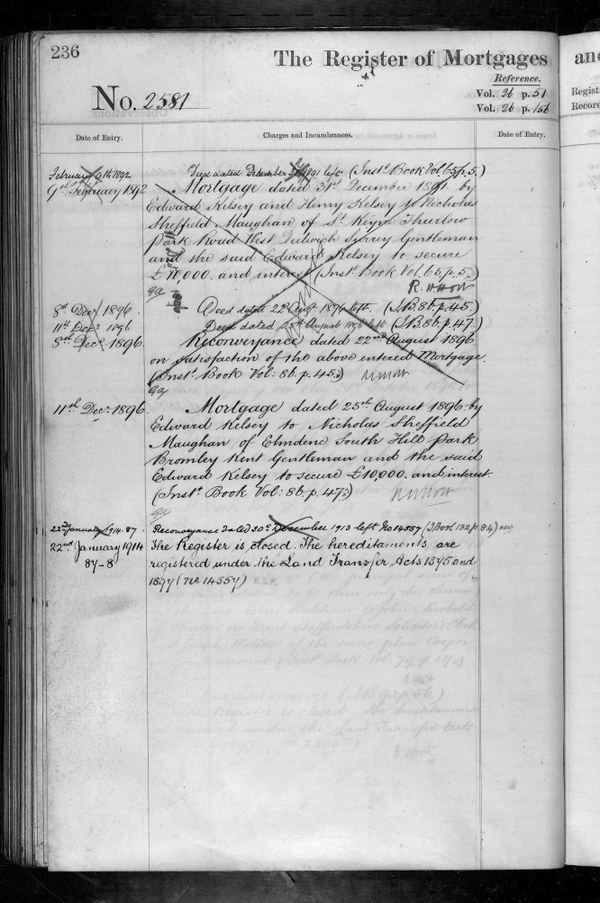 236
The Register of Mortgages
and
Reference.
No. 2581
Vol. 26 p. 51
Vol. 26 p. 156
Regist
Record
Date of Entry.
Charges and Incumbrances.
Date of Entry.
February 9th 1892
Deed dated December 31st 1891 left (Inst. Book Vol. 65 p. 5.)
9th February 1892
Mortgage dated 31st December 1891 by
Edward Kelsey and Henry Kelsey to Nicholas
Sheffield Maughan of St Keyne Thurlow
Park Road West Dulwich Surrey Gentleman
and the said Edward Kelsey to secure
£10,000. and interest (Inst. Book Vol. 65 p. 5.)
8th Decr 1896.
Deed dated 22d Augt 1896 left. (I.B. 86. p. 45.)
11th Decr 1896
Deed dated 25th August 1896 left (I.B. 86. p. 47.)
8th Decr 1896.
Reconveyance dated 22nd August 1896
on satisfaction of the above entered Mortgage.
(Inst. Book Vol: 86. p. 45.)
11th Decr 1896.
Mortgage dated 25th August 1896 by
Edward Kelsey to Nicholas Sheffield
Maughan of Elmdene South Hill Park
Bromley Kent Gentleman and the said
Edward Kelsey to secure £10,000. and interest.
(Inst. Book Vol: 86. p. 47.)
22nd January 1914. 87
Reconveyance dated 30th December 1913 left No 14557 (I Book 132 p. 84)
22nd January 1914
The Register is closed. The hereditaments are
87-8
registered under the Land Transfer Acts 1875 and
1897 (No 14557)